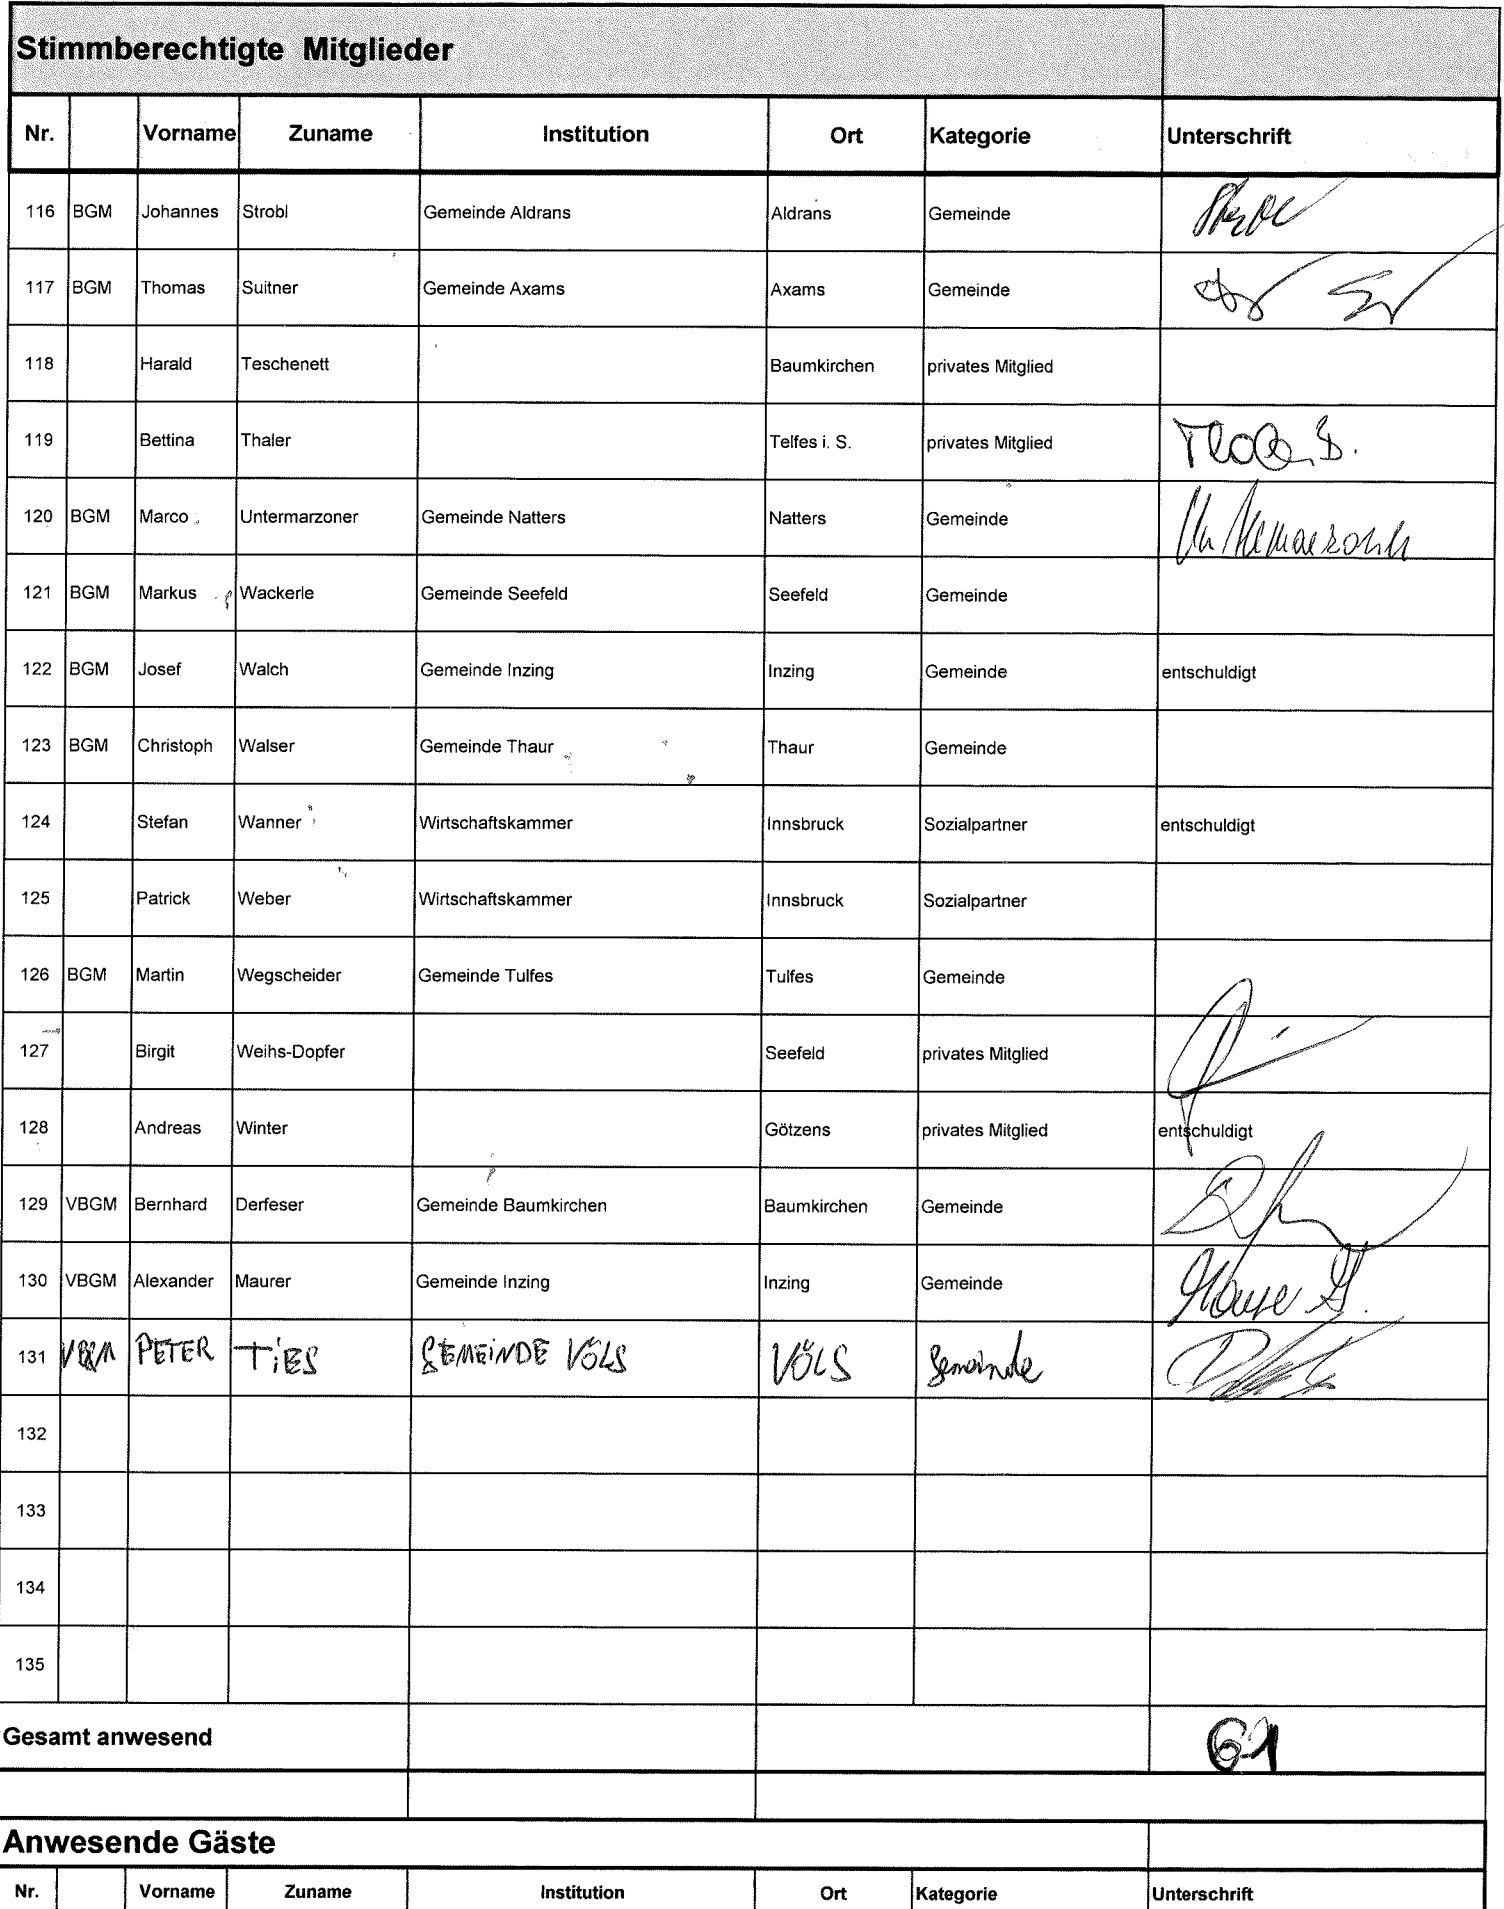 Stimmberechtigte Mitglieder
Nr. Vorname Zuname Institution Ort Kategorie Unterschrift
116 BGM Johannes Strobl Gemeinde Aldrans Aldrans Gemeinde
117 BGM Thomas Suitner Gemeinde Axams Axams Gemeinde
118 Harald Teschenett Baumkirchen privates Mitglied
119 Bettina Thaler Telfes i. S. privates Mitglied
120 BGM Marco Untermarzoner Gemeinde Natters Natters Gemeinde
121 BGM Markus Wackerle Gemeinde Seefeld Seefeld Gemeinde
122 BGM Josef Walch Gemeinde Inzing Inzing Gemeinde entschuldigt
123 BGM Christoph Walser Gemeinde Thaur Thaur Gemeinde
124 Stefan Wanner Wirtschaftskammer Innsbruck Sozialpartner entschuldigt
125 Patrick Weber Wirtschaftskammer Innsbruck Sozialpartner
126 BGM Martin Wegscheider Gemeinde Tulfes Tulfes Gemeinde
127 Birgit Weihs-Dopfer Seefeld privates Mitglied
128 Andreas Winter Götzens privates Mitglied entschuldigt
129 VBGM Bernhard Derfeser Gemeinde Baumkirchen Baumkirchen Gemeinde
130 VBGM Alexander Maurer Gemeinde Inzing Inzing Gemeinde
131 PETER TiES GEMEiNDE VÖLS VÖLS Gemeinde
132
133
134
135
Gesamt anwesend 61
Anwesende Gäste
Nr. Vorname Zuname Institution Ort Kategorie Unterschrift